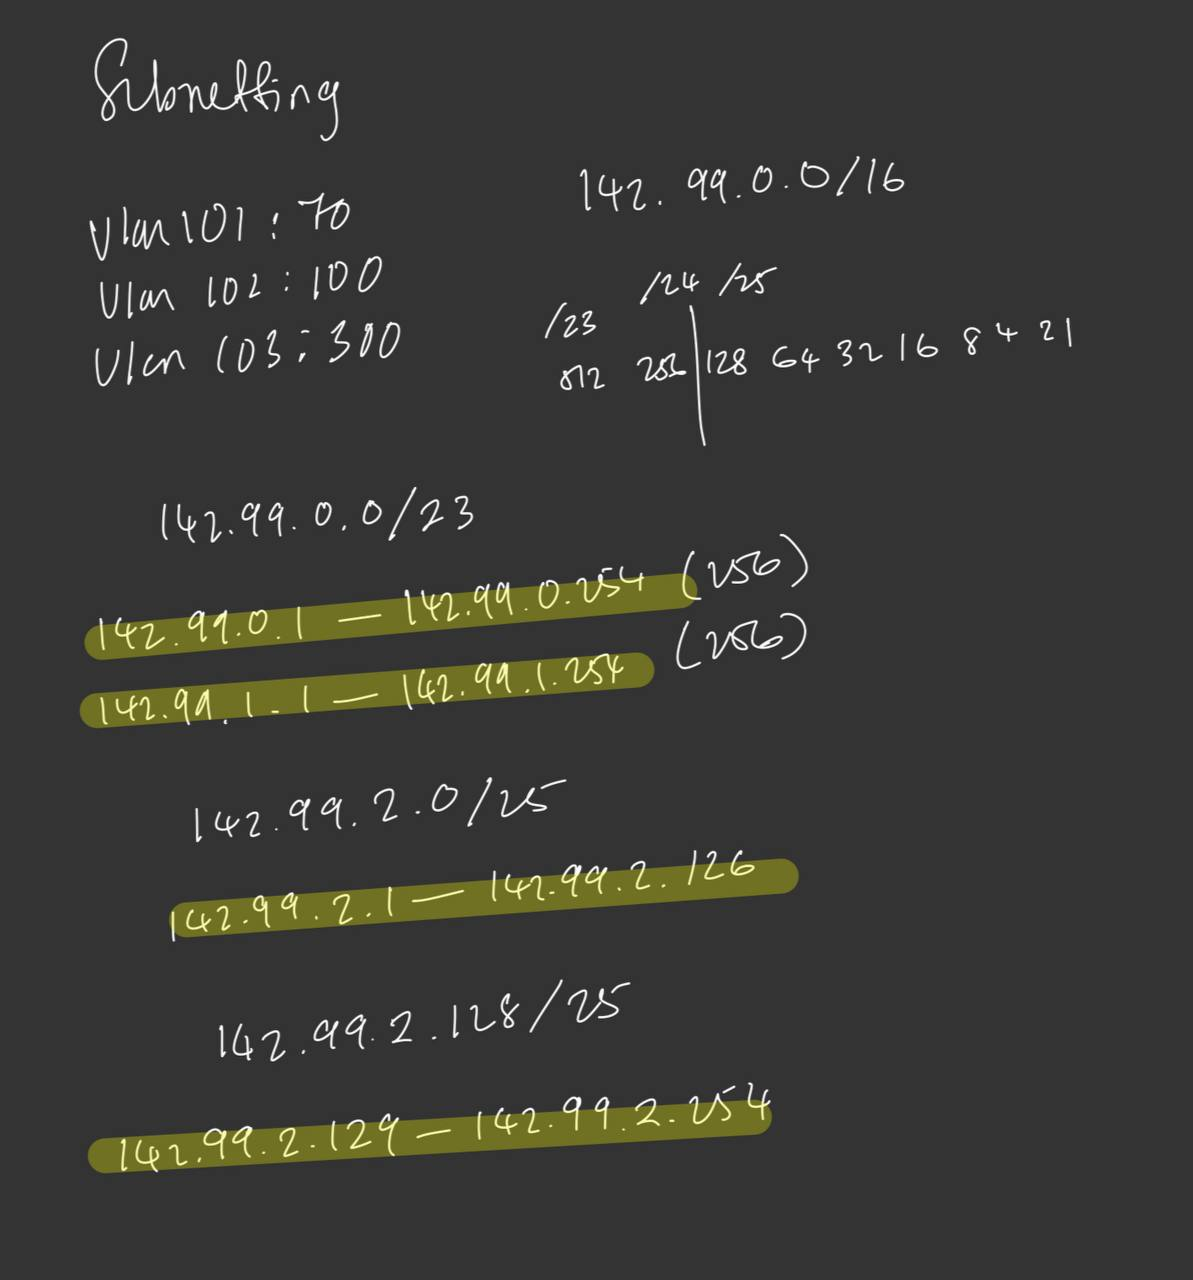 Subnetting
142. 99.0.0/16
Vlan 101 : 70
Vlan 102 : 100
Vlan 103 : 300
/23 /24 /25
512 256 128 64 32 16 8 4 2 1
142.99.0.0/23
142.99.0.1 — 142.99.0.254 (256)
142.99.1.1 — 142.99.1.254 (256)
142.99.2.0/25
142.99.2.1 — 142.99.2.126
142.99.2.128/25
142.99.2.129 — 142.99.2.254